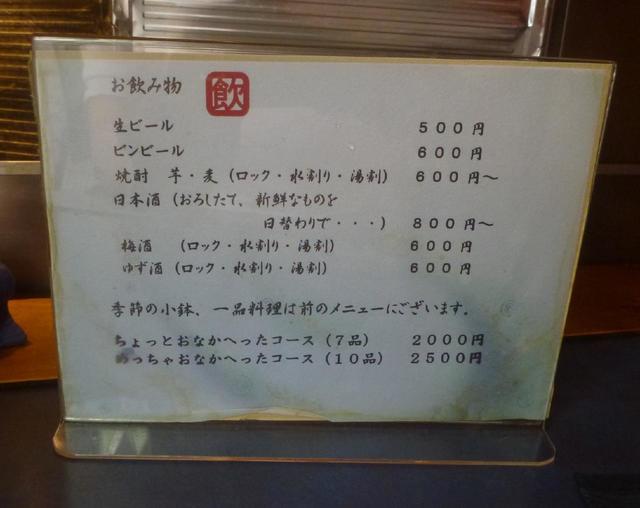 お飲み物 飲
生ビール 500円
ビンビール 600円
焼酎 芋・麦（ロック・水割り・湯割） 600円～
日本酒（おろしたて、新鮮なものを
日替わりで・・・） 800円～
梅酒 （ロック・水割り・湯割） 600円
ゆず酒（ロック・水割り・湯割） 600円
季節の小鉢、一品料理は前のメニューにございます。
ちょっとおなかへったコース（7品） 2000円
めっちゃおなかへったコース（10品） 2500円